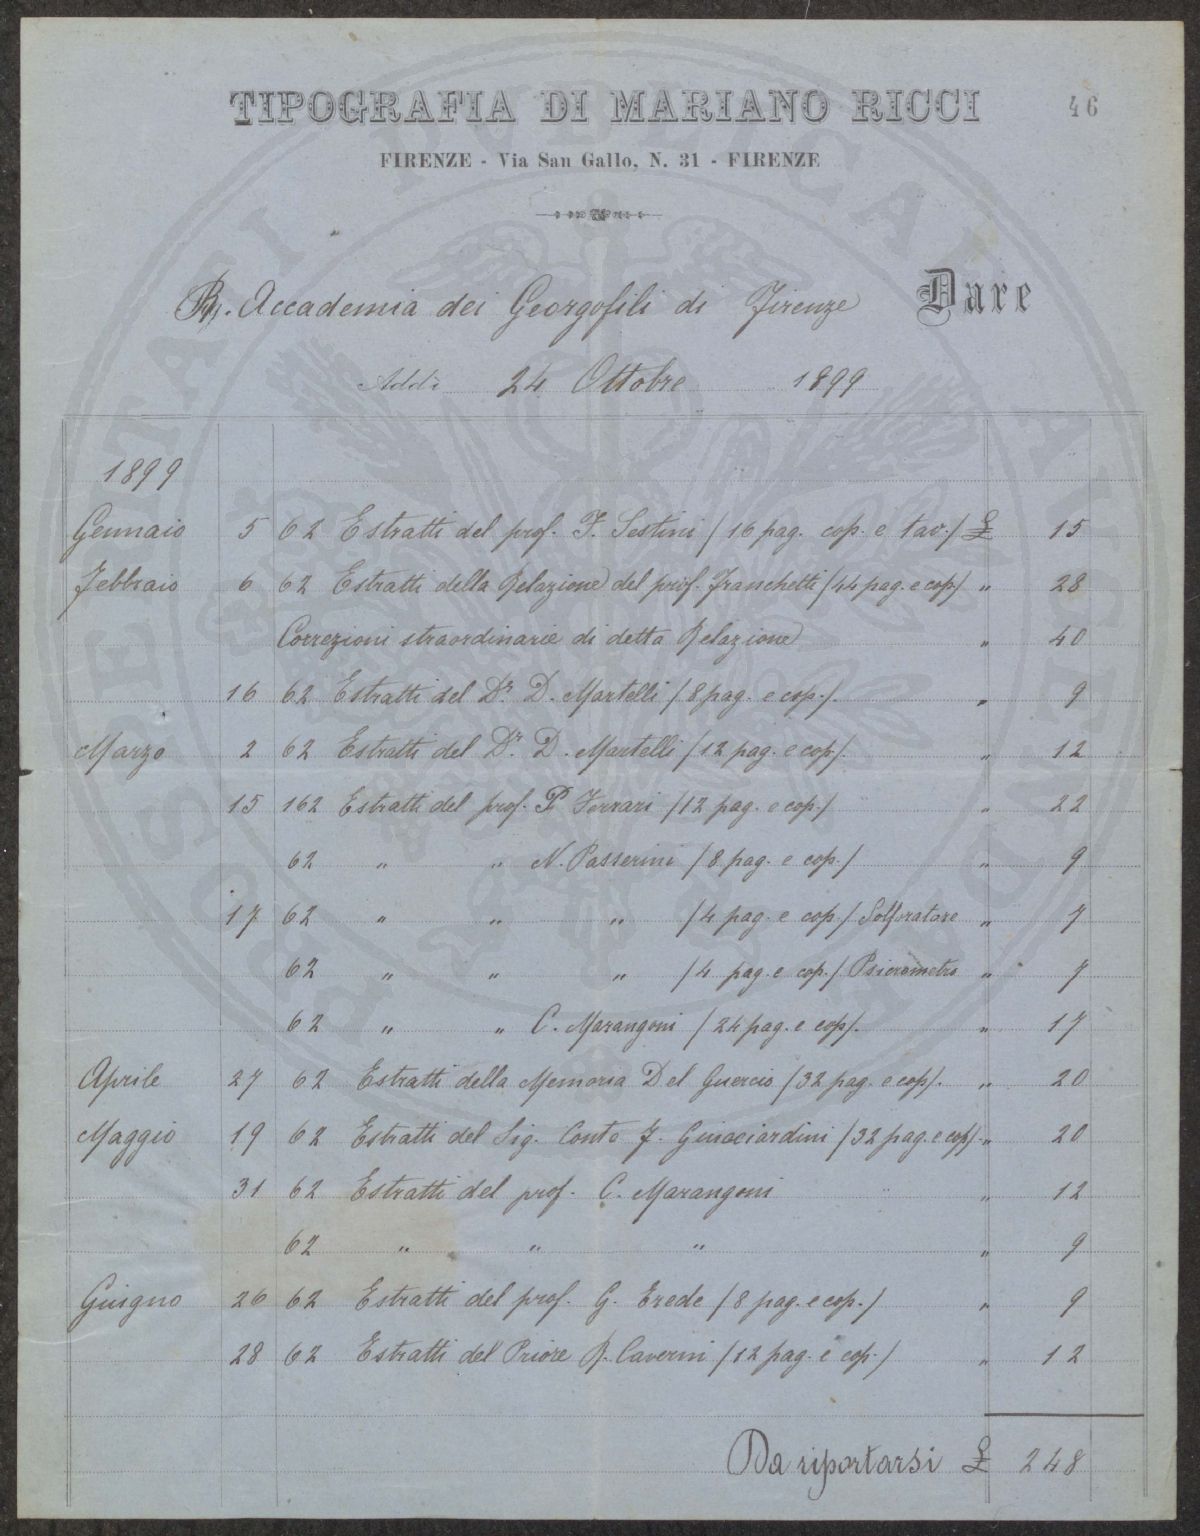 TIPOGRAFIA DI MARIANO RICCI
46
FIRENZE - Via San Gallo, N. 31 - FIRENZE
R. Accademia dei Georgofili di Firenze Dare
Addì 24 Ottobre 1899
1899
Gennaio 5 62 Estratti del prof. F. Sestini (16 pag. cop. e tav.) £ 15
Febbraio 6 62 Estratti della Relazione del prof. Franchetti (44 pag. e cop) " 28
Correzioni straordinarie di detta Relazione " 40
16 62 Estratti del Dr. D. Martelli (8 pag. e cop.). " 9
Marzo 2 62 Estratti del Dr. D. Martelli (12 pag. e cop). " 12
15 162 Estratti del prof. P. Ferrari (12 pag. e cop.) " 22
62 " " N. Passerini (8 pag. e cop.) " 9
17 62 " " " (4 pag. e cop.) Solforatore " 7
62 " " " (4 pag. e cop.) Psicrometro " 7
62 " " C. Marangoni (24 pag. e cop). " 17
Aprile 27 62 Estratti della Memoria Del Guercio (32 pag. e cop). " 20
Maggio 19 62 Estratti del Sig. Conte F. Guicciardini (32 pag. e cop) " 20
31 62 Estratti del prof. C. Marangoni " 12
62 " " " " 9
Guigno 26 62 Estratti del prof. G. Erede (8 pag. e cop.) " 9
28 62 Estratti del Priore R. Caverni (12 pag. e cop.) " 12
Da riportarsi £ 248